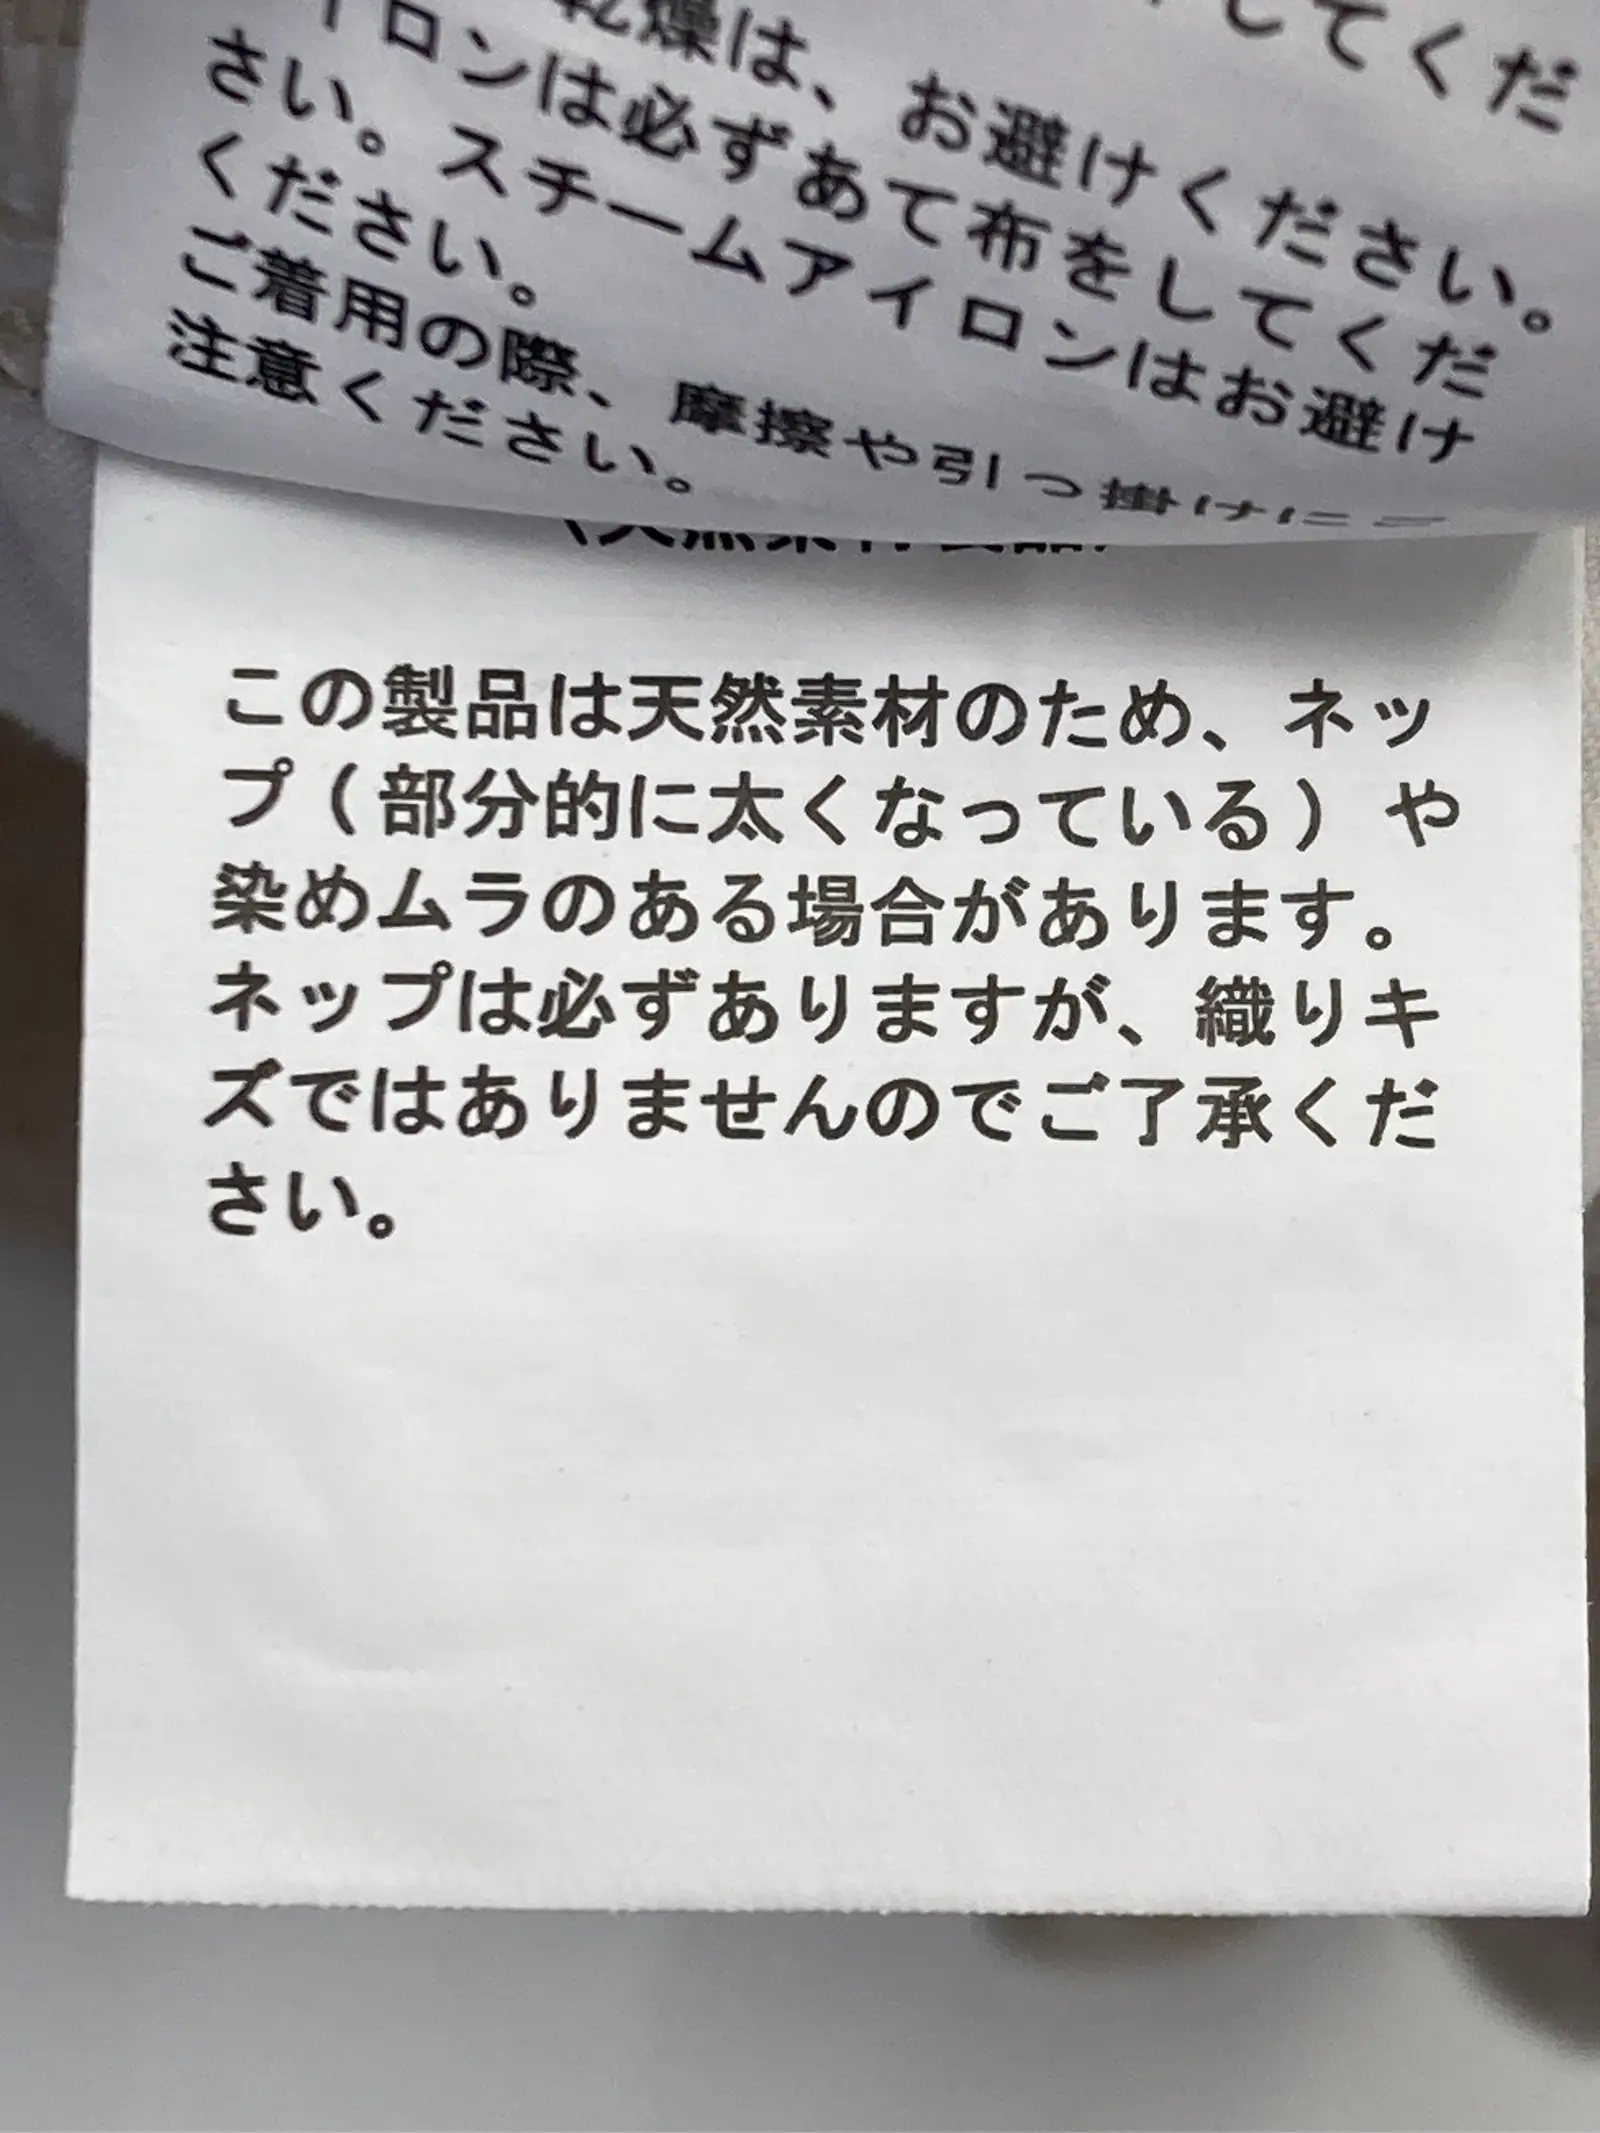 してくだ
乾燥は、お避けください。
イロンは必ずあて布をしてくだ
さい。スチームアイロンはお避け
ください。
ご着用の際、摩擦や引っ掛けにご
注意ください。
この製品は天然素材のため、ネッ
プ(部分的に太くなっている)や
染めムラのある場合があります。
ネップは必ずありますが、織りキ
ズではありませんのでご了承くだ
さい。